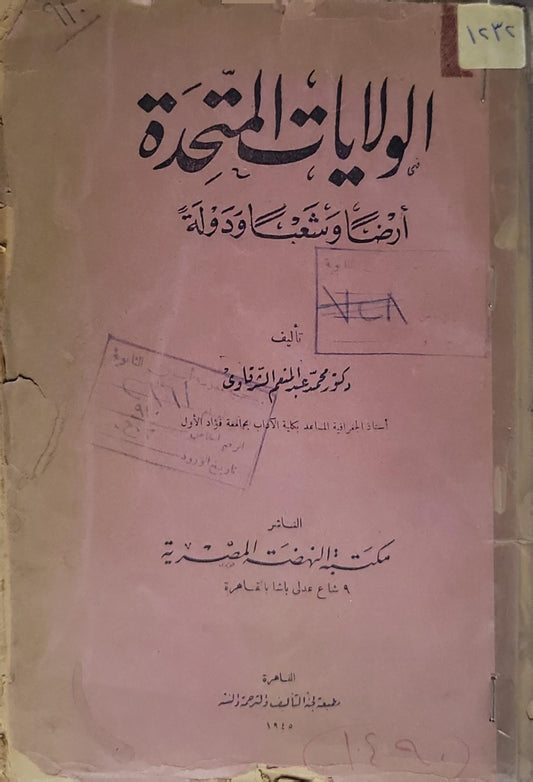 ٩١٠
١٢٣٢
الولايات المتّحِدَة
أرضًا وَشَعْبًا وَدَوْلَةً
تأليف
دكتور محمد عبد المنعم الشرقاوى
أستاذ الجغرافية المساعد بكلية الآداب بجامعة فؤاد الأول
الثانوية
تاريخ الورود
الناشر
مكتبة النهضة المصرية
٩ شارع عدلى باشا بالقاهرة
القاهرة
مطبعة لجنة التأليف والترجمة والنشر
١٩٤٥
(١٤٩٠)